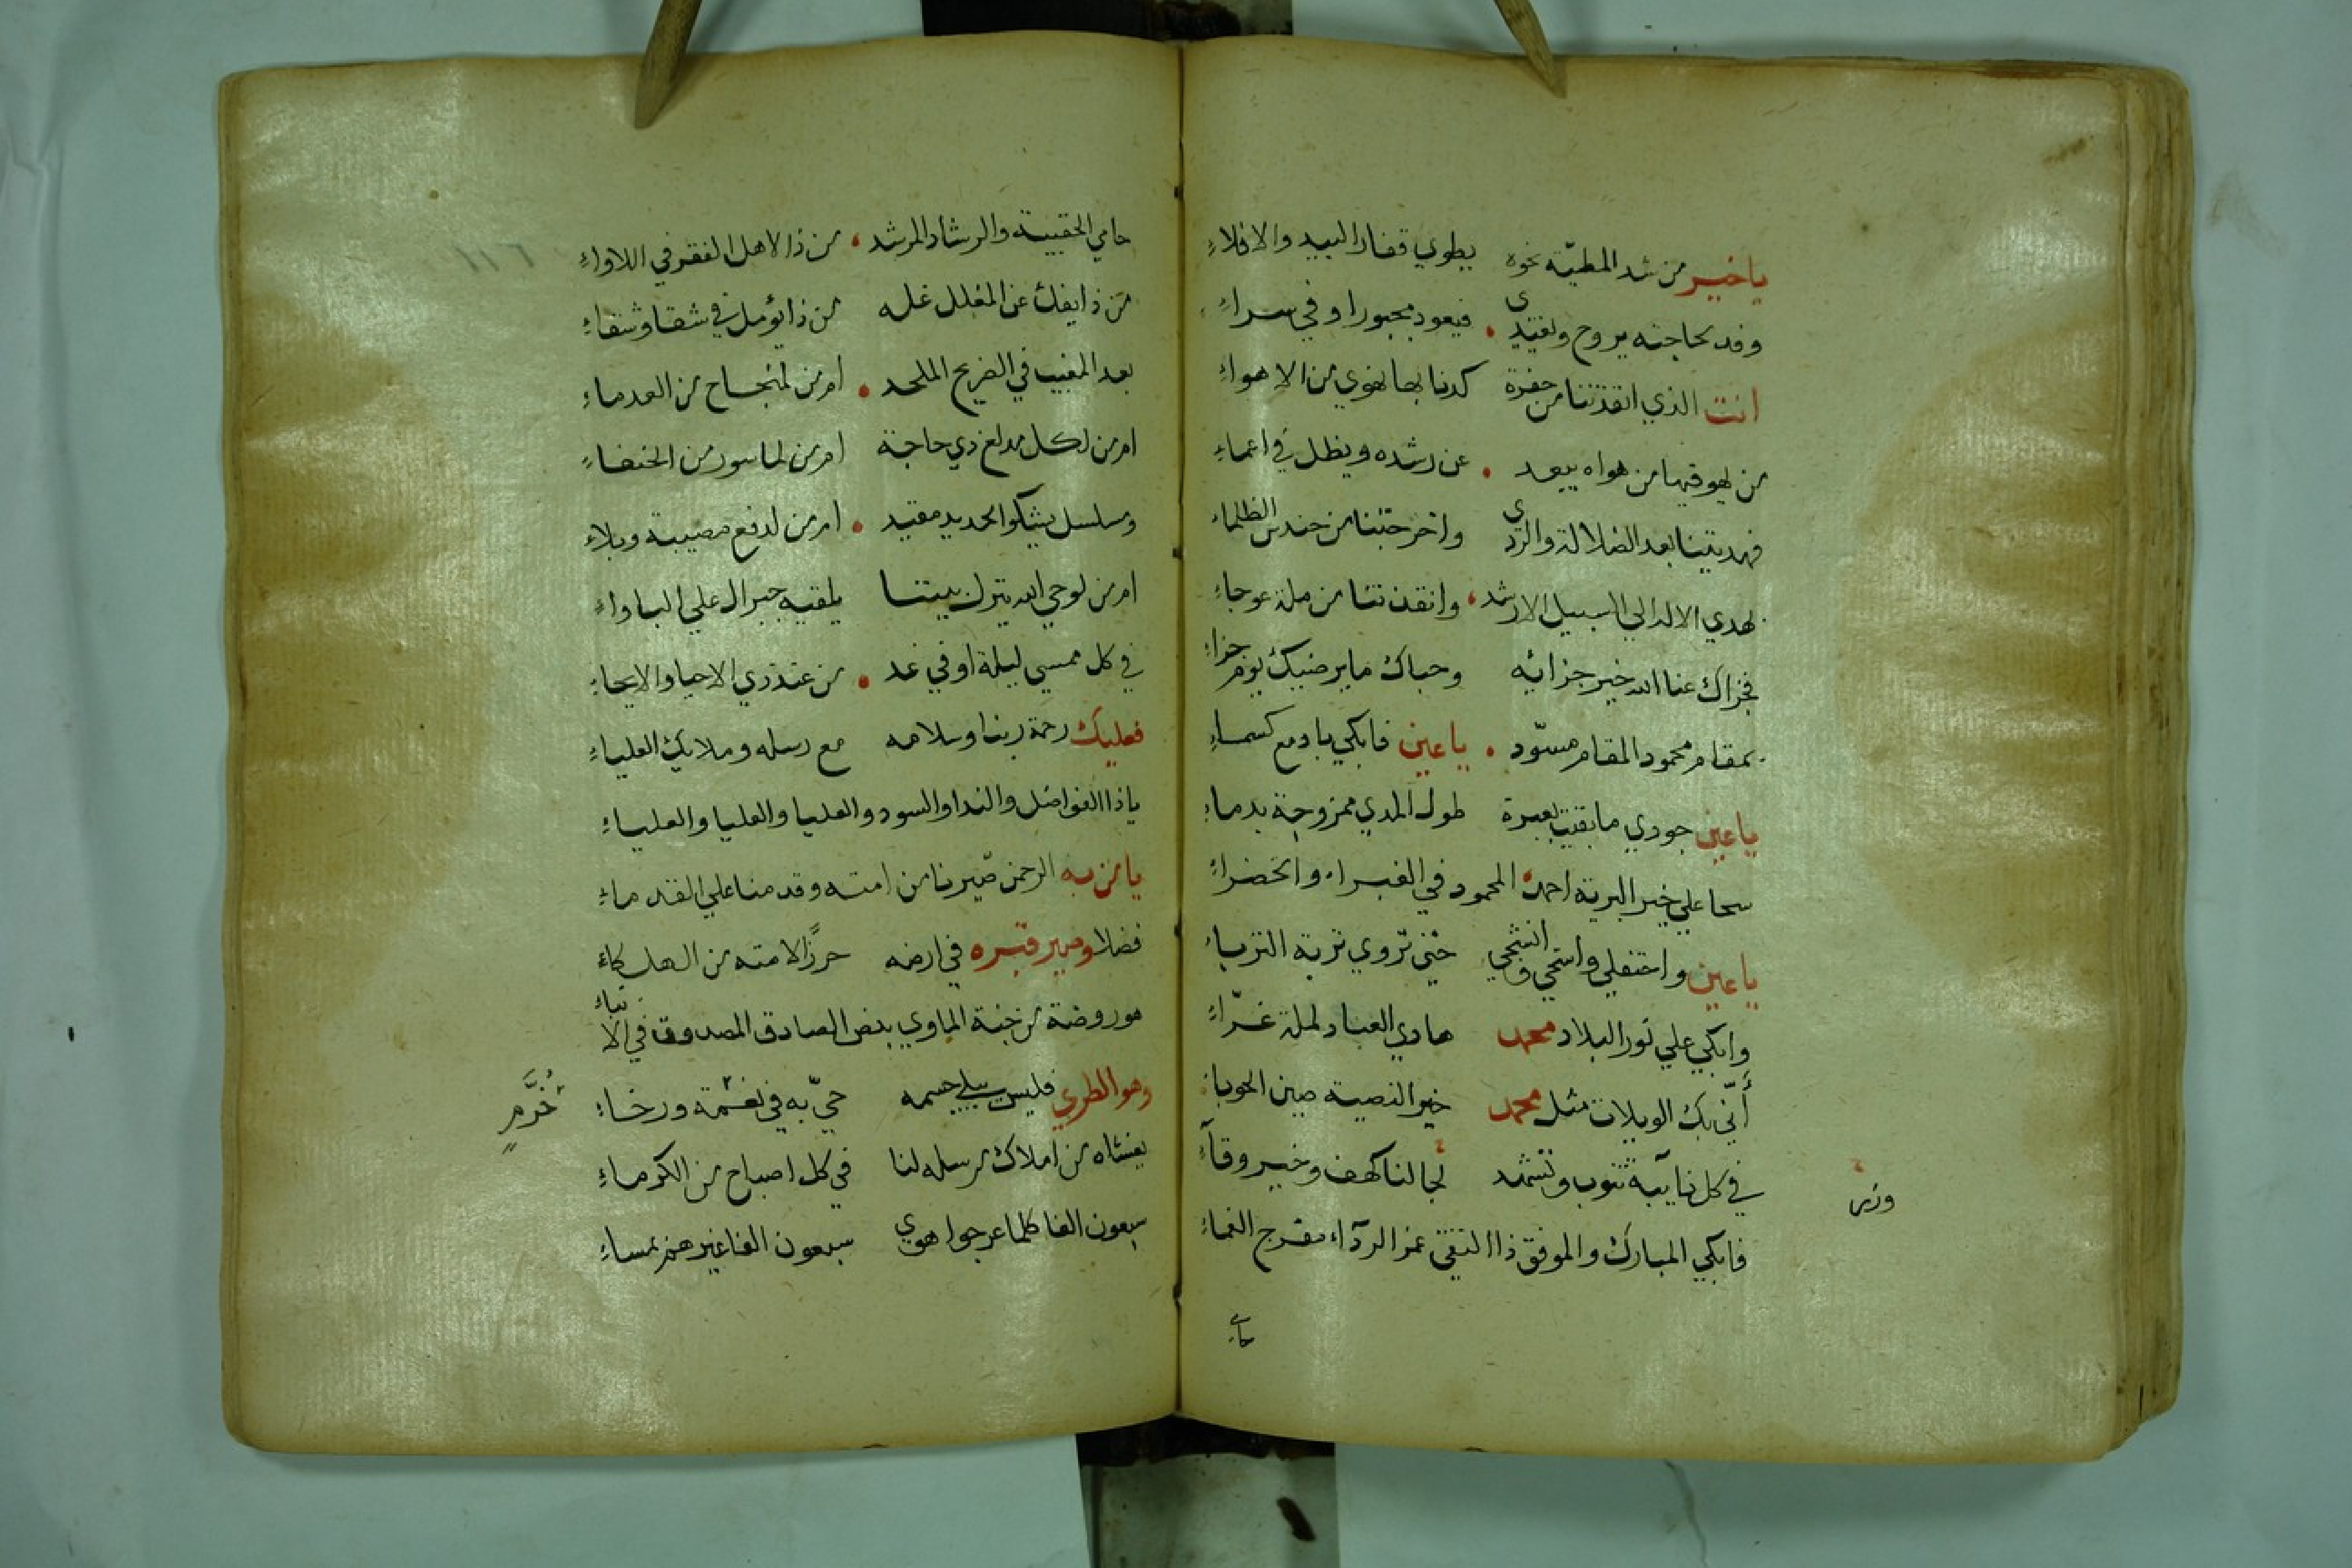 يا خير من شد المطية نحوه يطوي قفار البيد والافلاء
وفد بحاجته يروح ويغتدي • فيعود مجبورا وفي سراء
انت الذي انقذتنا من حفرة كدنا بها نهوي من الاهواء
من يهو فيها من هواه يبعد • عن رشده ويظل في اعماء
فهديتنا بعد الضلالة والردى واخرجتنا من حندس الظلماء
بهدي الاله الي السبيل الارشد • وانقذتنا من ملة عوجاء
فجزاك عنا الله خير جزائه وحباك ما يرضيك يوم جزاء
بمقام محمود المقام مسوّد • يا عين فابكي بادمع كسماء
يا عين جودي ما بقيت بعبرة طول المدي ممزوجة بدماء
سحا علي خير البرية احمد المحمود في الغبراء والخضراء
يا عين واحتفلي واسحي واثجي حتى تروي تربة الترباء
وابكي علي نور البلاد محمد هادي العباد لملة غرّاء
أنّي بك الويلات مثل محمد خير البصية حين الحوباء
في كل نايبة تنوب وتشهد لجا لنا كهف وخير وقآء
ورز
فابكي المبارك والموفق ذا التقي غمر الردآء مفرج الغماء
حامي
حامي الحقيبة والرشاد المرشد • من ذا لاهل الفقر في اللاواء
من ذا يفك عن المغلل غله من ذا يؤمل في شقا وشقاء
بعد المغيب في الضريح الملحد • ام من لمنجاح من العدماء
ام من لكل مدفع ذي حاجة ام من لماسور من الحنفاء
ومسلسل يشكوا الحديد مقيد • ام من لدفع مصيبة وبلاء
ام من لوحي الله يترك بيننا يلقيه جبرال علي الباواء
في كل ممسي ليلة او في غد • من عند ذي الاحيا والايحاء
فعليك رحمة ربنا وسلامه مع رسله وملايك العلياء
يا ذا الفواضل والندا والسودد والعليا والعليا والعلياء
يا من به الرحمن صيرنا من امته وقدمنا علي القدماء
فضلا وصير قبره في ارضه حرزا لامته من الهلكاء
هو روضة من جنة الماوي بنص الصادق المصدوق في الانباء
وهو الطري فليس يبلي جسمه حيّ به في نعمة ورخاء
خُرَّمٍ
يغشاه من املاك مرسله لنا في كل اصباح من الكرماء
سبعون الفا كلما عرجوا هوي سبعون الفا غيرهم بمساء